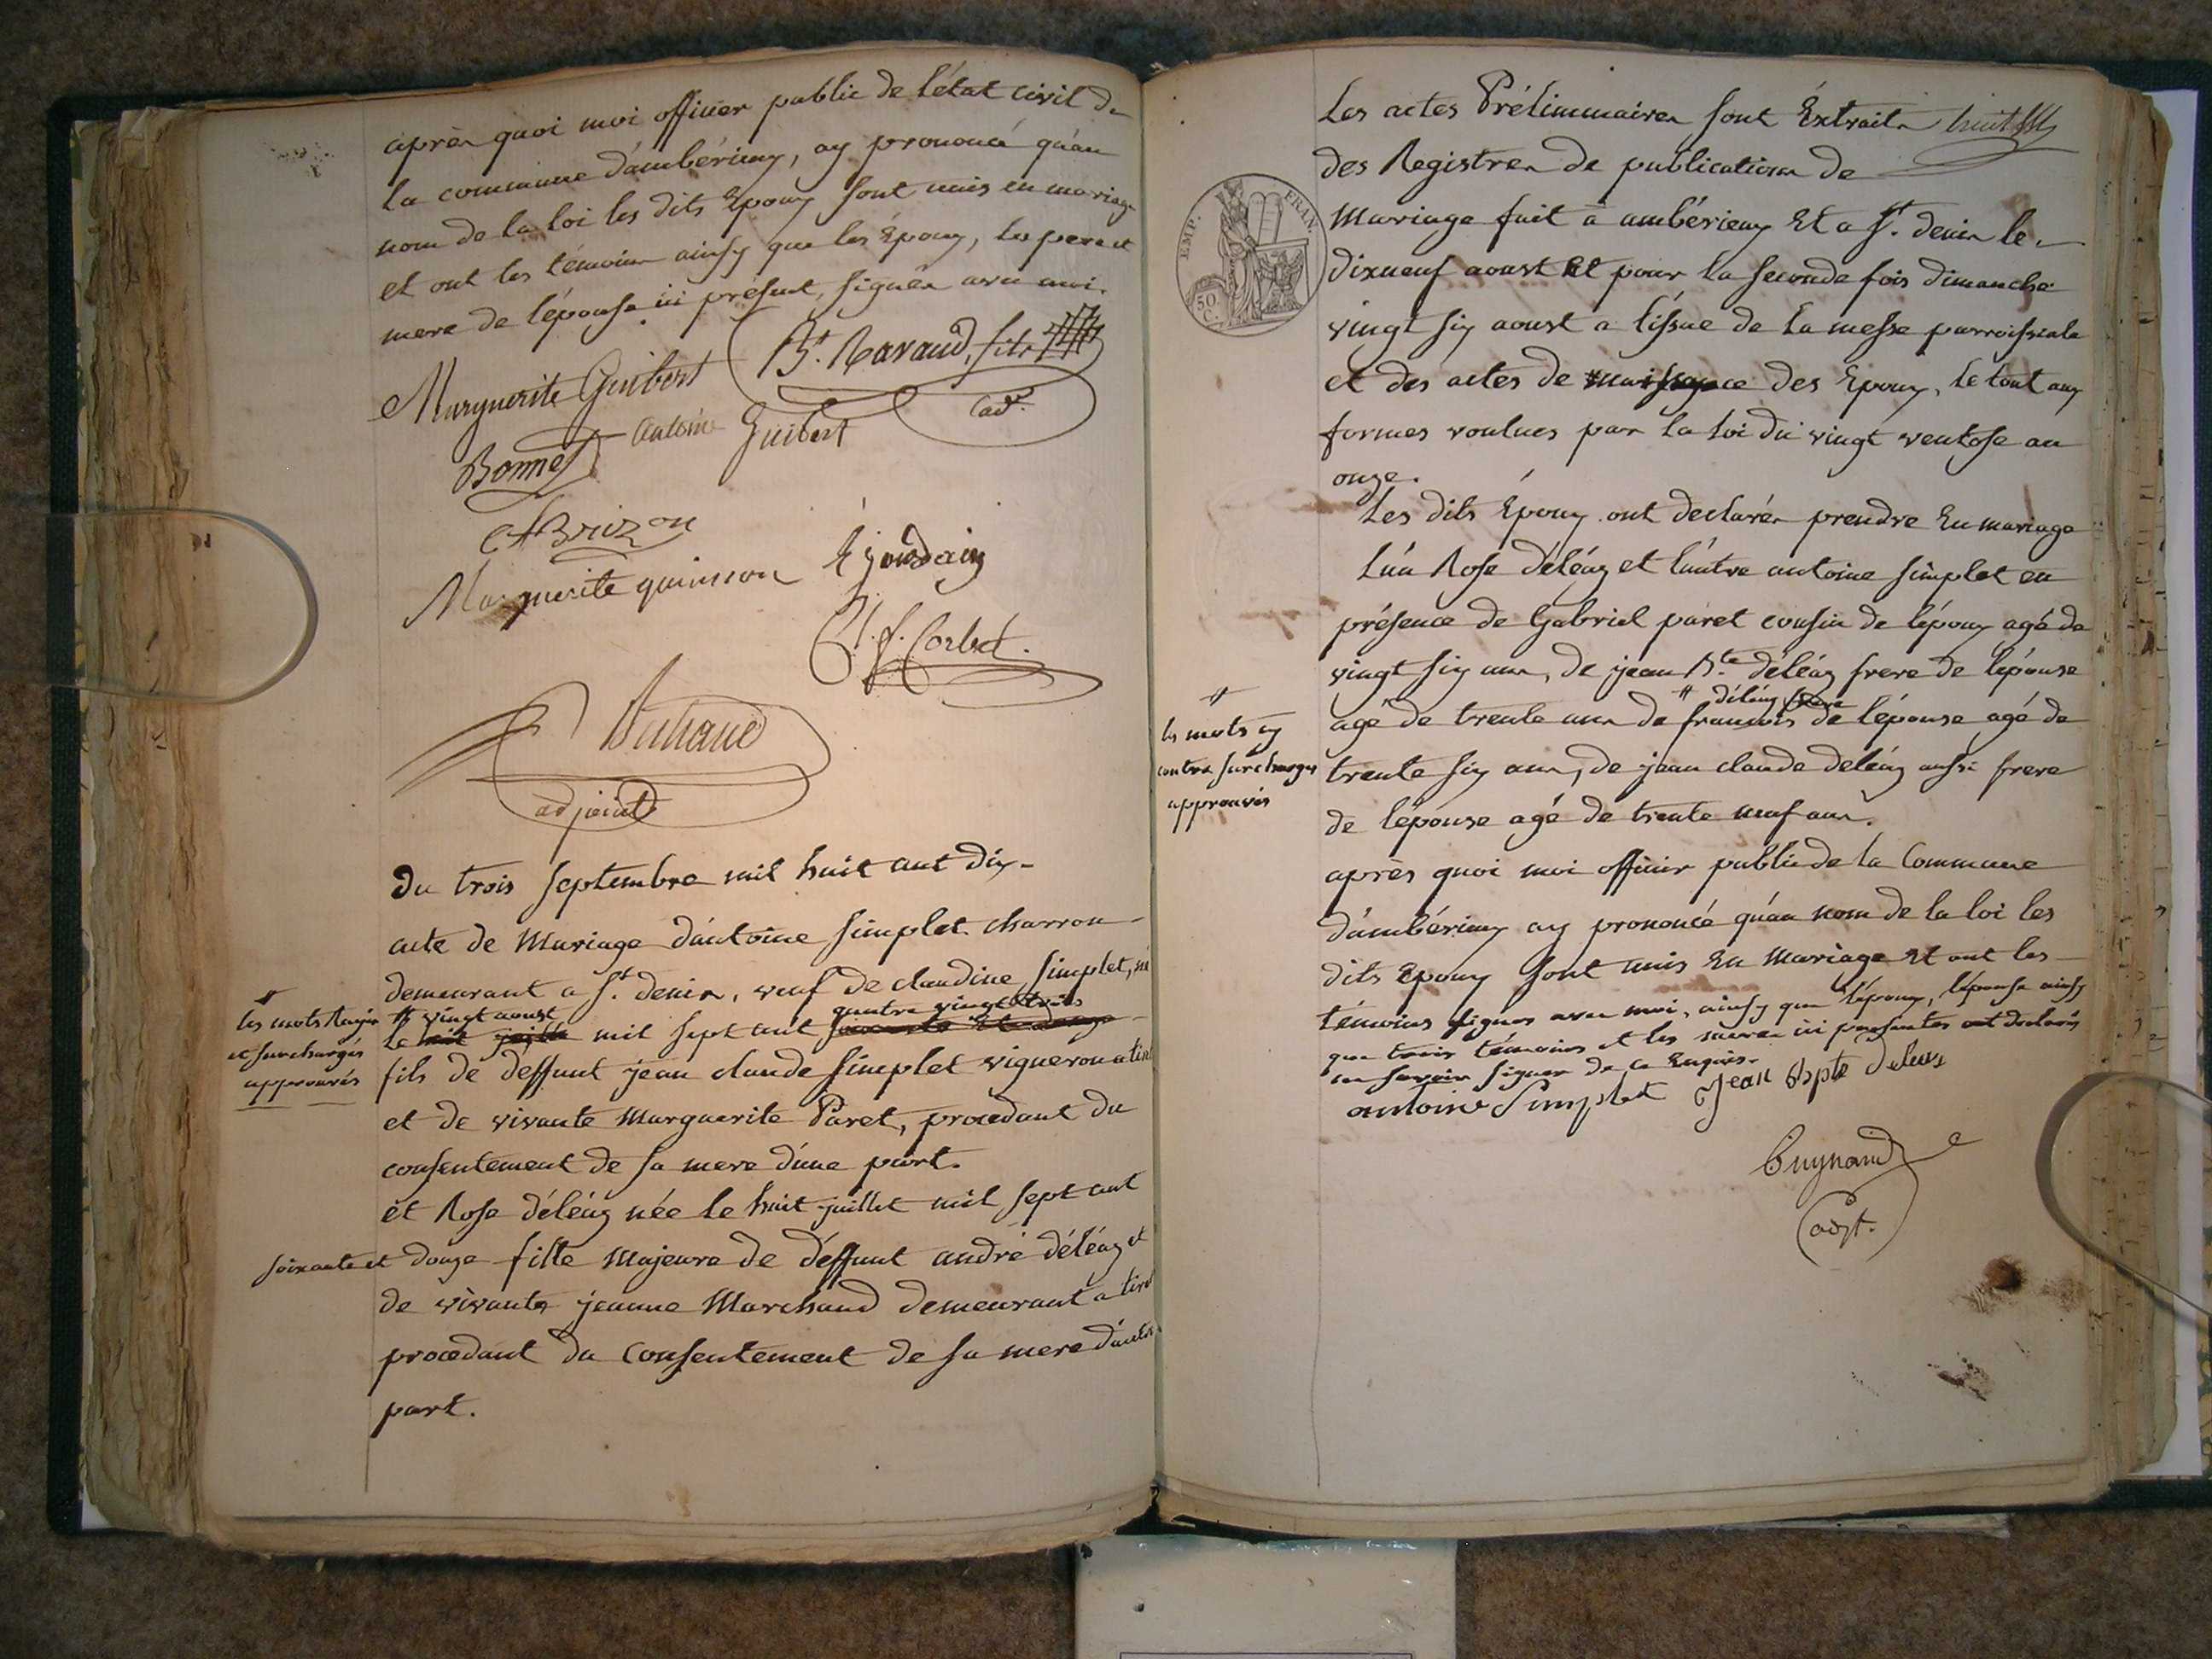 après quoi moi officier public de l'état civil de
la commune d'ambérieux, ay prononcé qu'au
nom de la loi les dits Epoux sont unis en mariage
et ont les témoins ainsy que les Époux, les pere et
mere de l'épouse ici présent, signés avec moi.
Marguerite Guibert Bt. Ravaud, fils
cadt.
Bonnet Antoine Guibert
Brizon
Marguerite quinson jourdain
Corbet.
adjoint
Du trois septembre mil huit cent dix
acte de Mariage d'antoine simplet charron
demeurant a St. denis, veuf de claudine simplet, né
# vingt aoust quatre vingt trois
le mil sept cent soixante et douze
les mots Rayés
et surchargés
approuvés
fils de deffunt jean claude simplet vigneron a tiret
et de vivante Marguerite Paret, procedant du
consentement de sa mere d'une part.
et Rose déléaz née le huit juillet mil sept cent
soixante et douze fille Majeure de deffunt andré déléaz et
de vivante jeanne Marchand demeurant a tiret
procedant du consentement de sa mere d'autre
part.
Les actes Préliminaires sont Extraits huit
des Registres de publications de
EMP. FRAN.
50 C.
Mariage fait à ambérieux Et a St. denis le
dixneuf aoust Et pour la seconde fois dimanche
vingt six aoust a l'issue de la messe parroissiale
et des actes de naissance des Epoux, le tout aux
formes voulues par la loi du vingt ventose an
onze.
Les dits Époux ont declarés prendre En mariage
L'un Rose déléaz et l'autre antoine simplet en
présence de Gabriel paret cousin de l'époux agé de
vingt six ans, de jean Bte. déléaz frere de l'épouse
# déléaz frere
agé de trente ans de francois de l'épouse agé de
#
les mots cy
contre surchargés
approuvés
trente six ans, de jean claude déléaz aussi frere
de l'épouse agé de trente neuf ans.
après quoi moi officier public de la Commune
d'ambérieux ay prononcé qu'au nom de la loi les
dits Epoux sont unis En Mariage Et ont les
témoins signés avec moi, ainsy que l'époux, l'épouse ainsy
que trois témoins et les meres ici presentes ont declarés
ne savoir signer de ce Enquis.
antoine Simplet Jean Bpte deleas
Guynand
adjt.